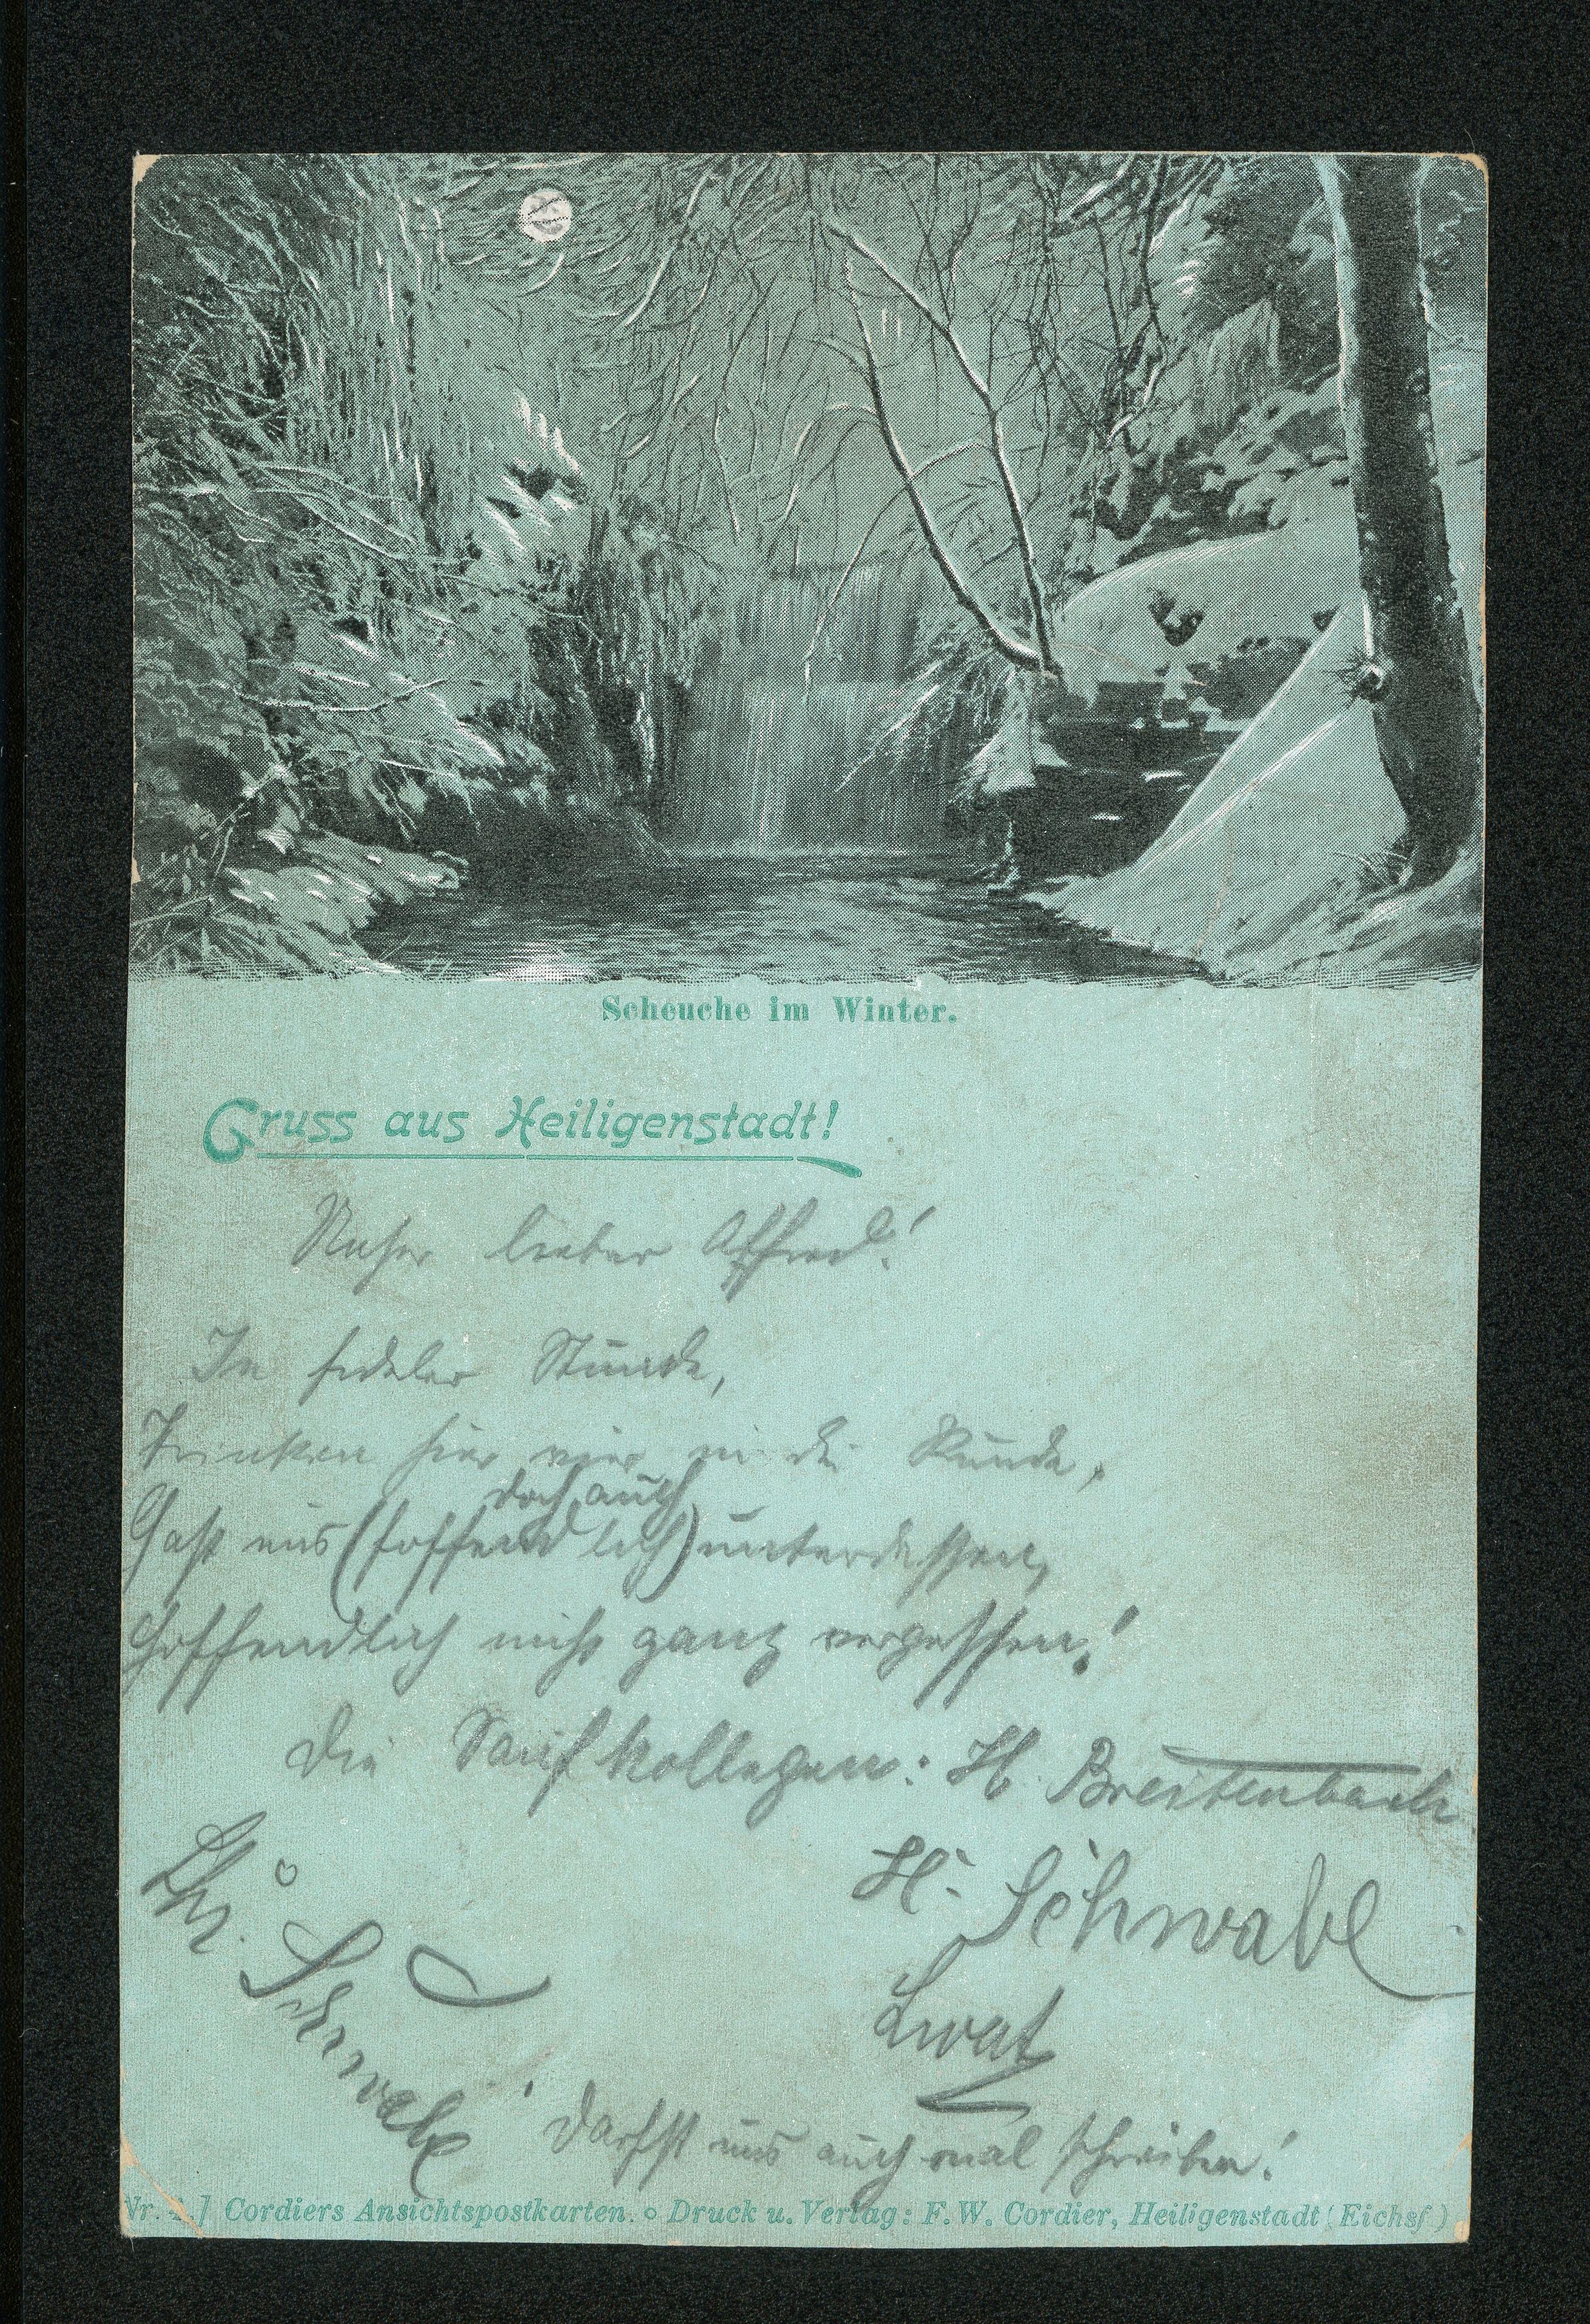 Scheuche im Winter.
Gruss aus Heiligenstadt!
Unser lieber Alfred!
In fideler Stunde,
Trinken hier wir in die Runde,
doch auch
Hast uns (hoffendlich) unterdessen,
Hoffendlich nicht ganz vergessen!
Die Saufkollegen: H. Breitenbach
H. Schwabe
Chr. Schwabe
Lwat
Darfst uns auch mal schreiben!
Cordiers Ansichtspostkarten. o Druck u. Verlag: F. W. Cordier, Heiligenstadt (Eichsf.)